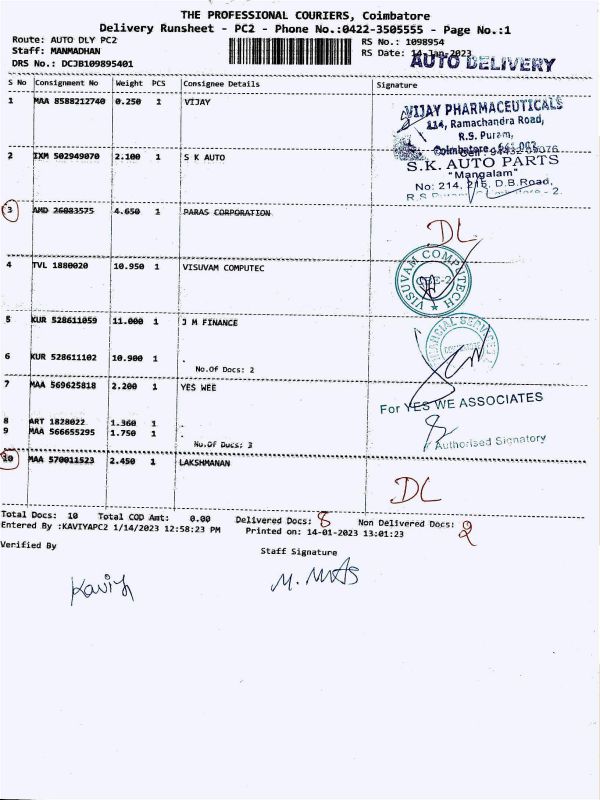 THE PROFESSIONAL COURIERS, Coimbatore
Delivery Runsheet - PC2 - Phone No.:0422-3505555 - Page No.:1
Route: AUTO DLY PC2
Staff: MANMADHAN
DRS No.: DCJB109895401
RS No.: 1098954
RS Date: 14-Jan-2023
AUTO DELIVERY
S No Consignment No Weight PCS Consignee Details Signature
1 MAA 8588212740 0.250 1 VIJAY
VIJAY PHARMACEUTICALS
114, Ramachandra Road,
R.S. Puram,
Coimbatore
2 IXM 502949070 2.100 1 S K AUTO
S.K. AUTO PARTS
"Mangalam"
No: 214, 215, D.B.Road,
3 AMD 26083575 4.650 1 PARAS CORPORATION
DL
4 TVL 1880020 10.950 1 VISUVAM COMPUTEC
VISUVAM COMPUTECH
5 KUR 528611059 11.000 1 J M FINANCE
6 KUR 528611102 10.900 1 .
No.Of Docs: 2
7 MAA 569625818 2.200 1 YES WEE
For YES WE ASSOCIATES
8 ART 1828022 1.360 1 .
9 MAA 566655295 1.750 1 .
No.Of Docs: 3
Authorised Signatory
10 MAA 570011523 2.450 1 LAKSHMANAN
DL
Total Docs: 10 Total COD Amt: 0.00 Delivered Docs: 8 Non Delivered Docs: 2
Entered By :KAVIYAPC2 1/14/2023 12:58:23 PM Printed on: 14-01-2023 13:01:23
Verified By
Staff Signature